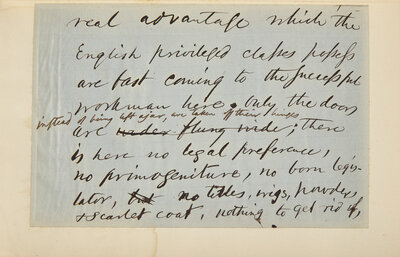 real advantage which the
English privileged classes possess
are fast coming to the successful
workman here. Only the doors
instead of being left ajar, are taken off their hinges
are wider flung wide; there
is here no legal preference,
no primogeniture, no born legis-
lator, but no titles, wigs, powder,
& scarlet coat, nothing to get rid of,